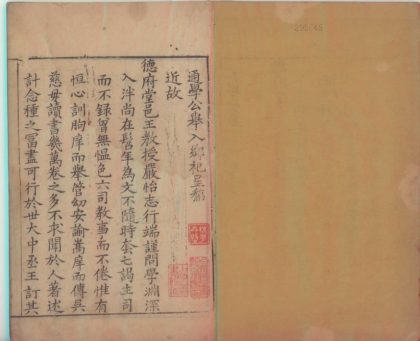 通學公舉入鄉祀呈
近故
德府堂邑王教授嚴怡志行端謹問學淵深
入泮尚在髫年為文不隨時套七謁主司
而不錄曾無慍色六司教事而不倦惟有
恒心訓朐庠而舉管幼安諭嵩庠而傳吳
慈母讀書幾萬卷之多不求聞於人著述
計念種之富盡可行於世大中丞王訂其